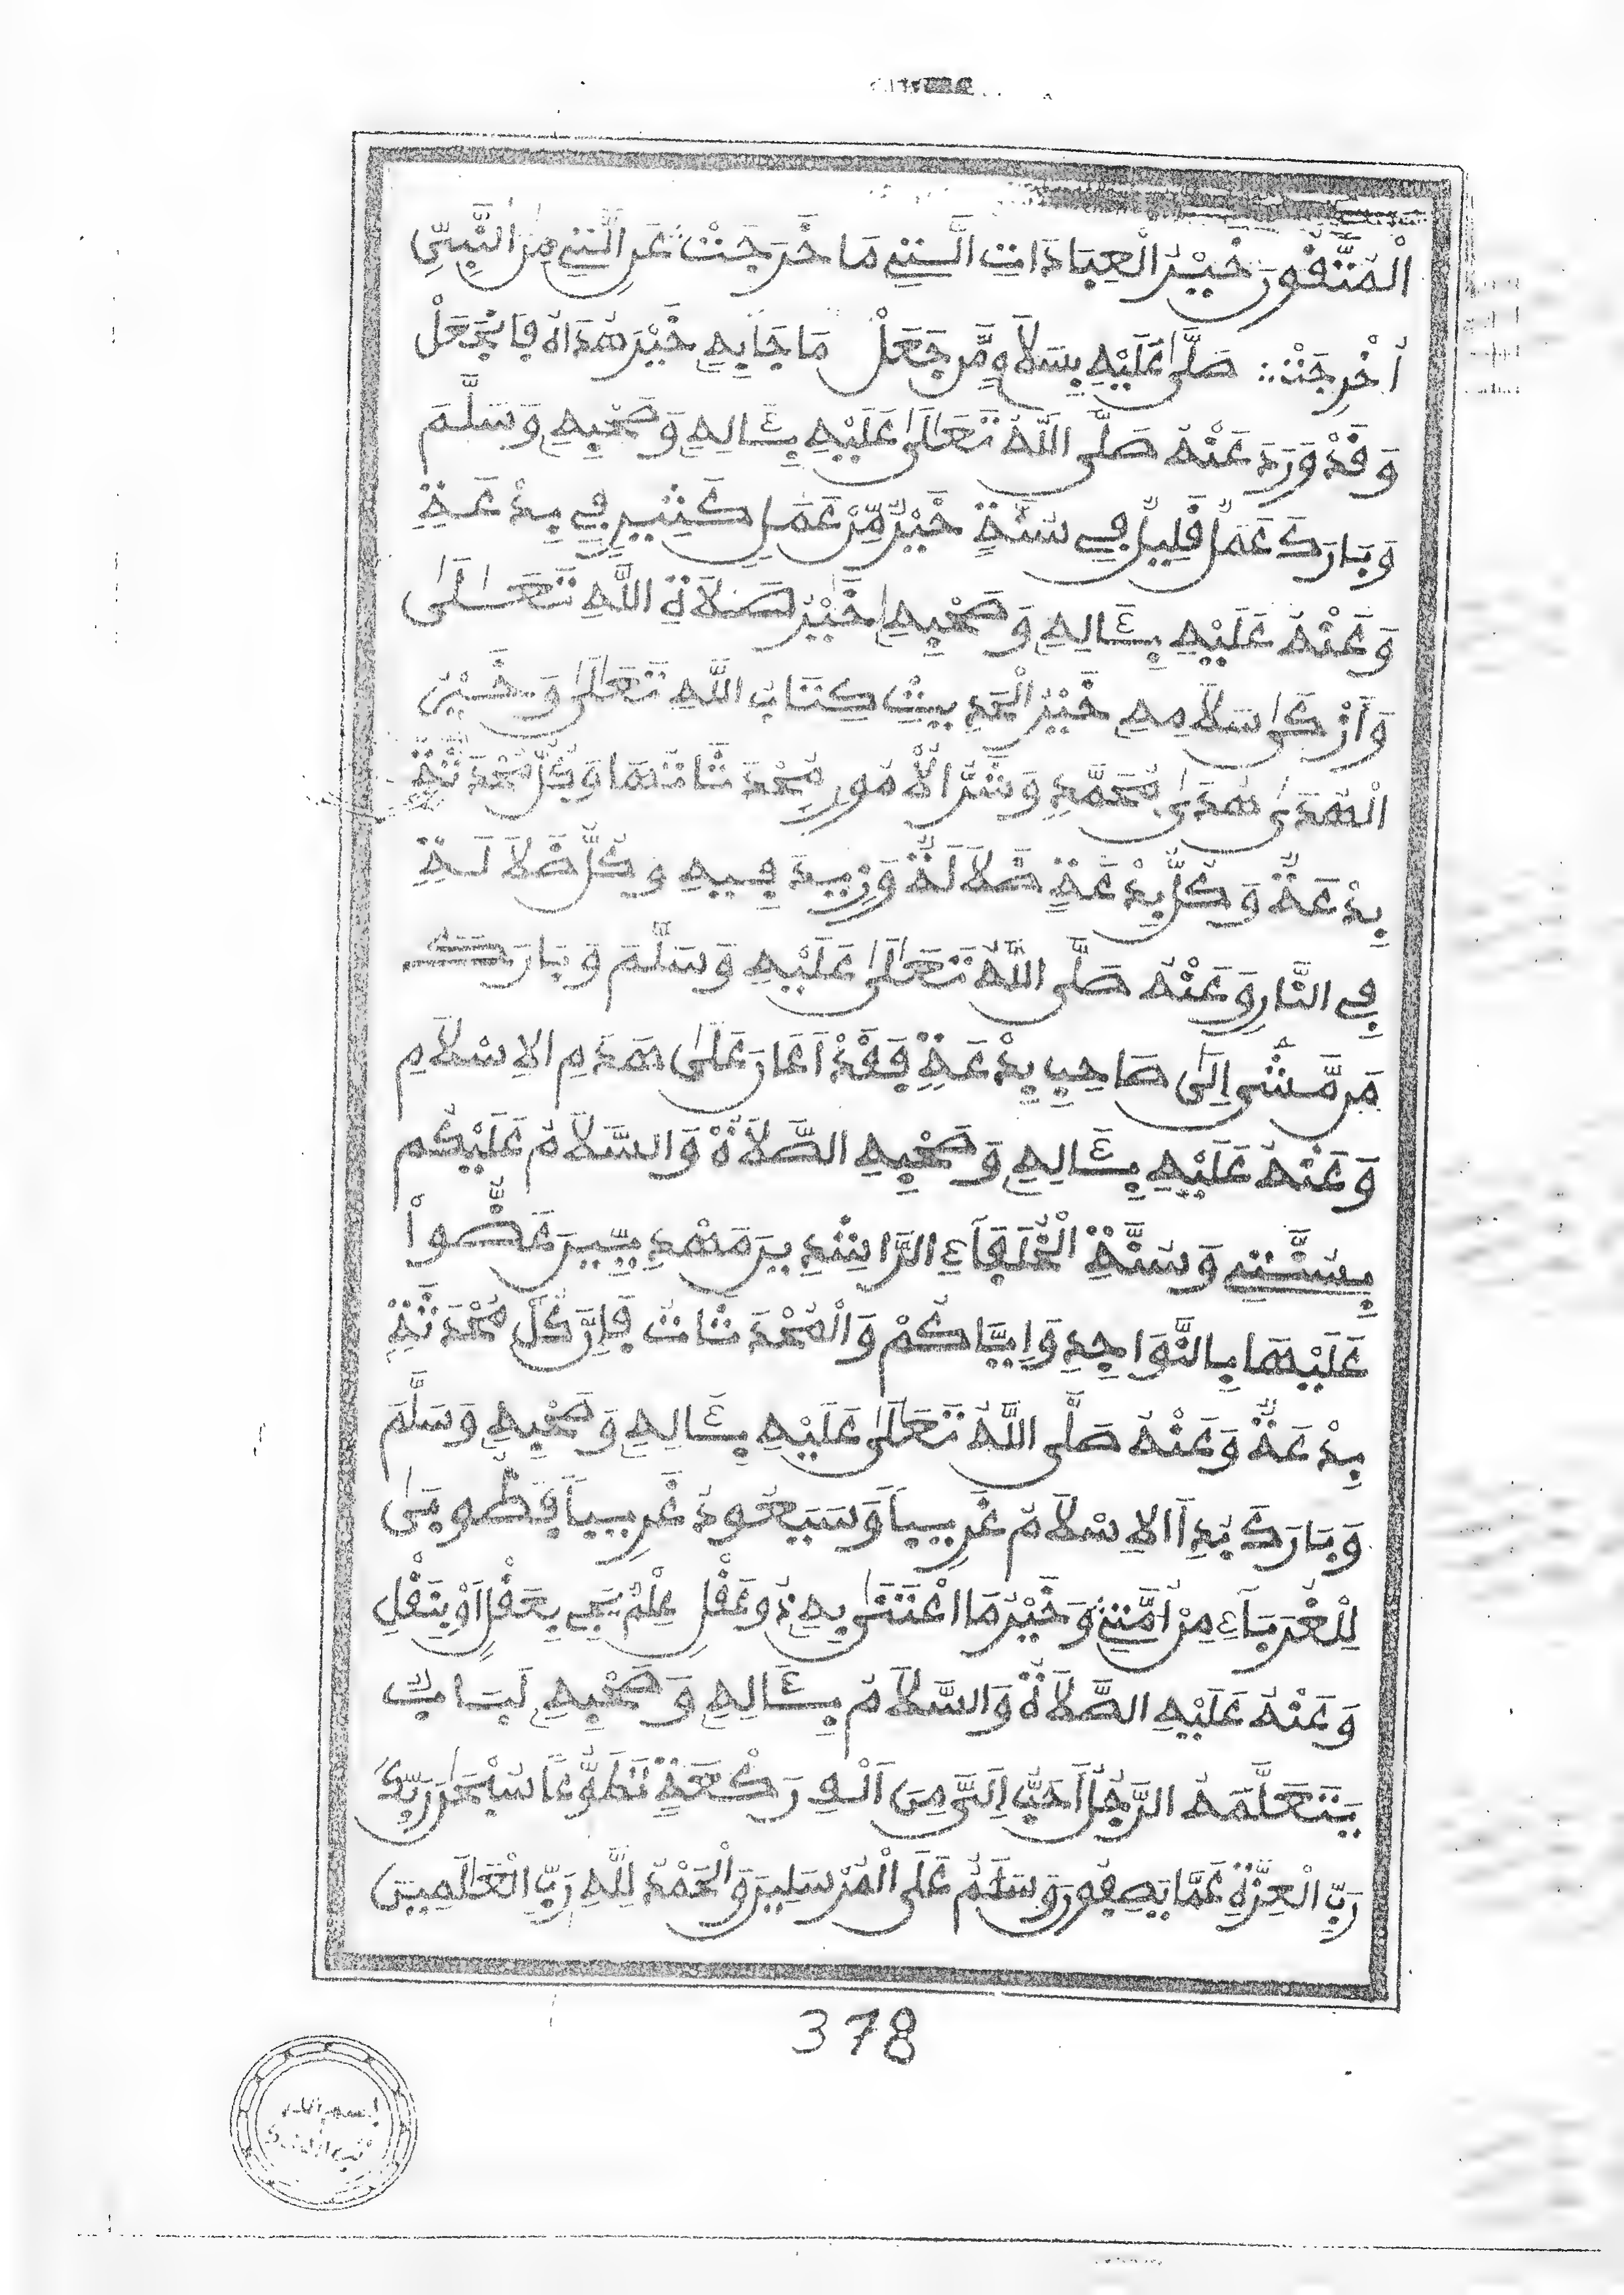 الْمُتَّقُونَ خَيْرُ الْعِبَادَاتِ الَّتِي مَا خَرَجَتْ عَنِ الَّتِي مِنَ النَّبِيِّ
أُخْرِجَتْ صَلَّى عَلَيْهِ بِسَلَامٍ مَّن جَعَلْ مَا جَا بِهِ خَيْرَ هُدَاهُ فَانْجَعَلْ
وَقَدْ وَرَدَ عَنْهُ صَلَّى اللَّهُ تَعَالَى عَلَيْهِ بِـَٔالِهِ وَصَحْبِهِ وَسَلَّمَ
وَبَارَكَ عَمَلٌ قَلِيلٌ فِي سُنَّةٍ خَيْرٌ مِّنْ عَمَلٍ كَثِيرٍ فِي بِدْعَةٍ
وَعَنْهُ عَلَيْهِ بِـَٔالِهِ وَصَحْبِهِ خَيْرُ صَلَاةِ اللَّهِ تَعَالَى
وَأَزْكَى سَلَامِهِ خَيْرُ الْحَدِيثِ كِتَابُ اللَّهِ تَعَالَى وَخَيْرُ
الْهُدَى هُدَى مُحَمَّدٍ وَشَرُّ الْأُمُورِ مُحْدَثَاتُهَا وَكُلُّ مُحْدَثَةٍ
بِدْعَةٌ وَكُلُّ بِدْعَةٍ ضَلَالَةٌ وَزِيدَ فِيهِ وَكُلُّ ضَلَالَةٍ
فِي النَّارِ وَعَنْهُ صَلَّى اللَّهُ تَعَالَى عَلَيْهِ وَسَلَّمَ وَبَارَكَ
مَن مَّشَى إِلَى صَاحِبِ بِدْعَةٍ فَقَدْ أَعَانَ عَلَى هَدَمِ الإِسْلَامِ
وَعَنْهُ عَلَيْهِ بِـَٔالِهِ وَصَحْبِهِ الصَّلَاةُ وَالسَّلَامُ عَلَيْكُم
بِسُنَّتِي وَسُنَّةِ الْخُلَفَاءِ الرَّاشِدِينَ مَهْدِيِّينَ عَضُّواْ
عَلَيْهَا بِالنَّوَاجِدِ وَإِيَّاكُمْ وَالْمُحْدَثَاتُ فَإِنَّ كُلَّ مُحْدَثَةٍ
بِدْعَةٌ وَعَنْهُ صَلَّى اللَّهُ تَعَالَى عَلَيْهِ بِـَٔالِهِ وَصَحْبِهِ وَسَلَّمَ
وَبَارَكَ بُدِأَ الإِسْلَامُ غَرِيباً وَسَيَعُودُ غَرِيباً فَطُوبَى
لِلْغُرَبَاءِ مِنْ أُمَّتِي وَخَيْرُ مَا اعْتَنَى بِهِ ذُو عَقْلِ عِلْمٌ يَجِي بِعَقْلٍ أَوْ بِنَقْلِ
وَعَنْهُ عَلَيْهِ الصَّلَاةُ وَالسَّلَامُ بِـَٔالِهِ وَصَحْبِهِ لَبَابٌ
يَتَعَلَّمُهُ الرَّجُلُ أَحَبُّ إِلَيَّ مِنَ أَلْفِ رَكْعَةٍ تَطَوُّعاً سُبْحَانَ رَبِّكَ
رَبِّ الْعِزَّةِ عَمَّا يَصِفُونَ وَسَلَامٌ عَلَى الْمُرْسَلِينَ وَالْحَمْدُ لِلَّهِ رَبِّ الْعَالَمِينَ
378